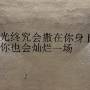 光终究会撒在你身
你也会灿烂一场